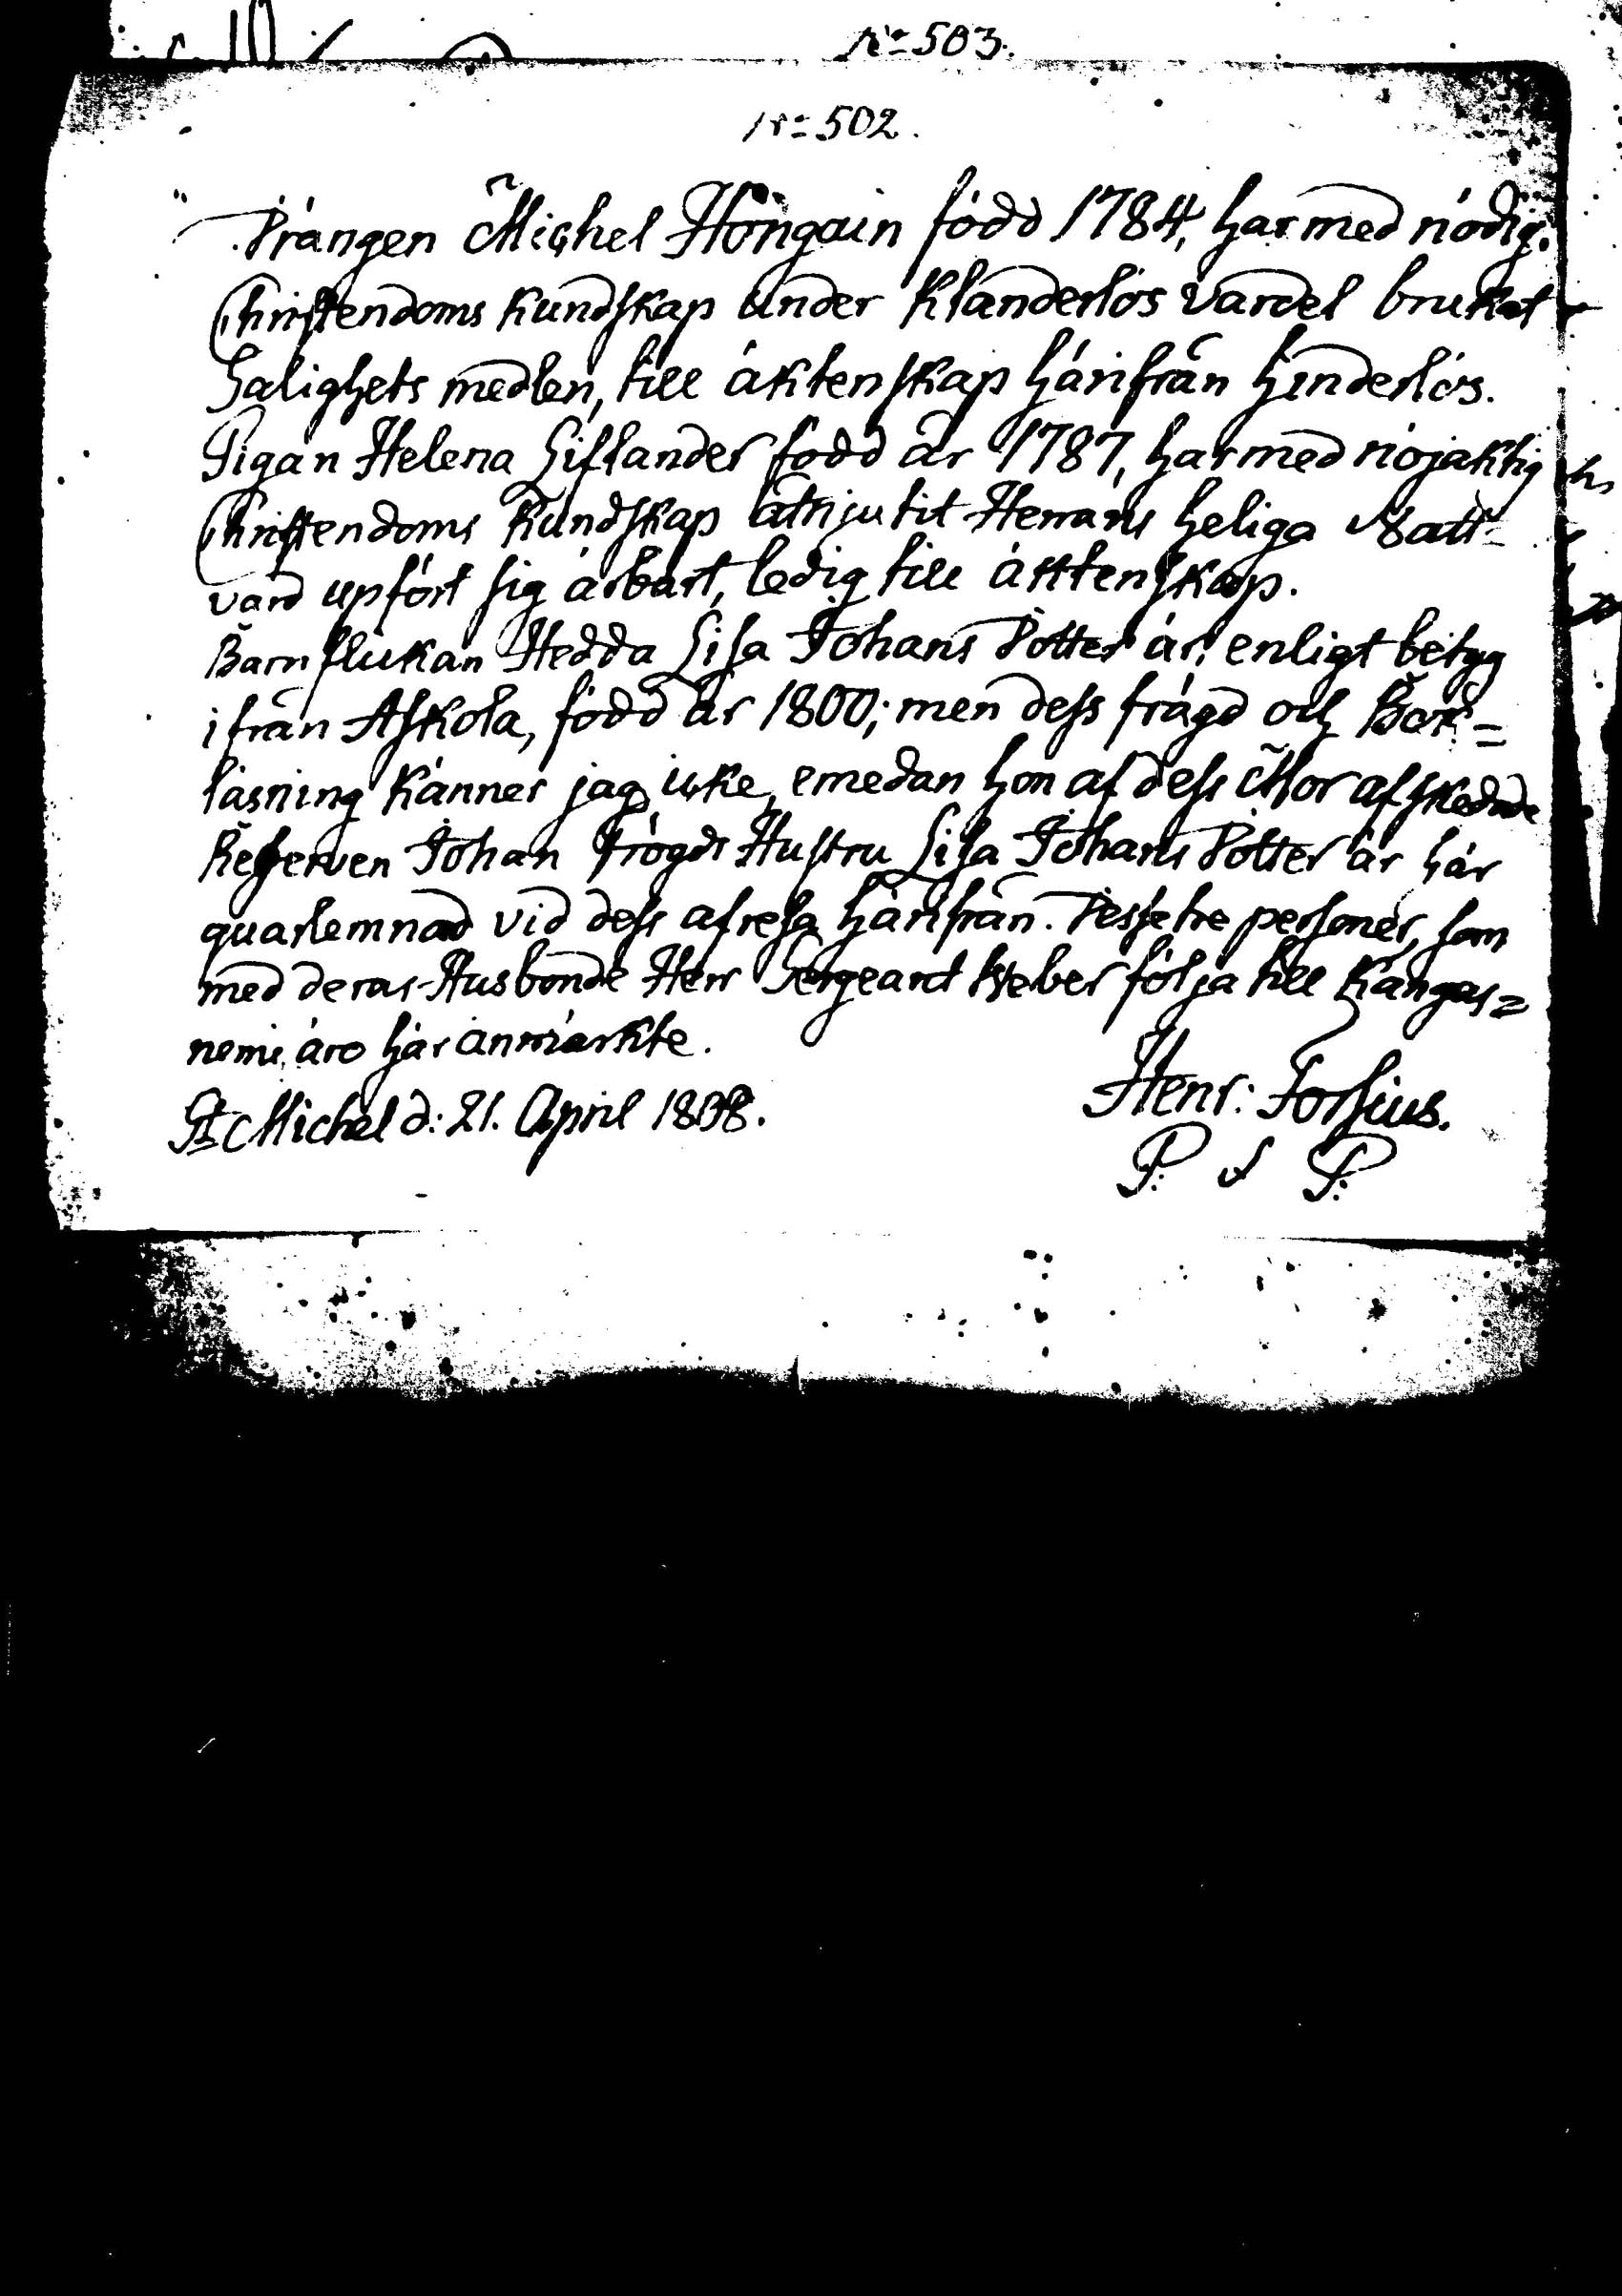 No 503.
No 502.
Drängen Michel Höngain född 1784, har med nödig
Christendoms kundskap under klanderlös vandel brukat
Salighets medlen, till äktenskap härifrån hinderlös.
Pigan Helena Liflander född år 1787, har med nöjaktig
Christendoms kundskap åtnjutit Herrans heliga Natt-
vard upfört sig ärbart, ledig till äktenskap.
Barnflickan Hedda Lisa Johans Dotter är, enligt betyg
ifrån Askola, född år 1800; men dess frägd och Bok=
läsning känner jag icke, emedan hon af dess Mor afskedade
Reserven Johan Frögds Hustru Lisa Johans Dotter är här
quarlemnad vid dess afresa härifrån. Desse tre personer, som
med deras Husbonde Herr Sergeant Weber följa till Kangas=
nemi, äro här anmärkte.
St Michel d: 21. April 1808.
Henr: Forsius.
P: P: